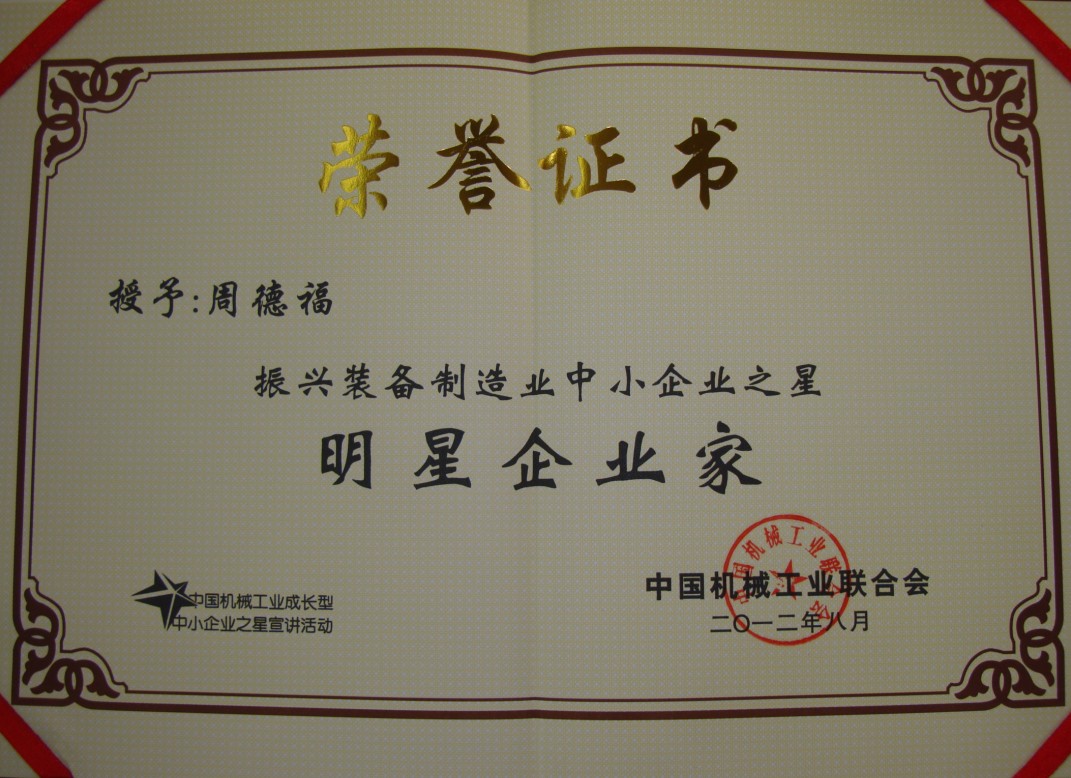 荣誉证书
授予:周德福
振兴装备制造业中小企业之星
明星企业家
中国机械工业成长型
中小企业之星宣讲活动
中国机械工业联合会
中国机械工业联合会
二〇一二年八月